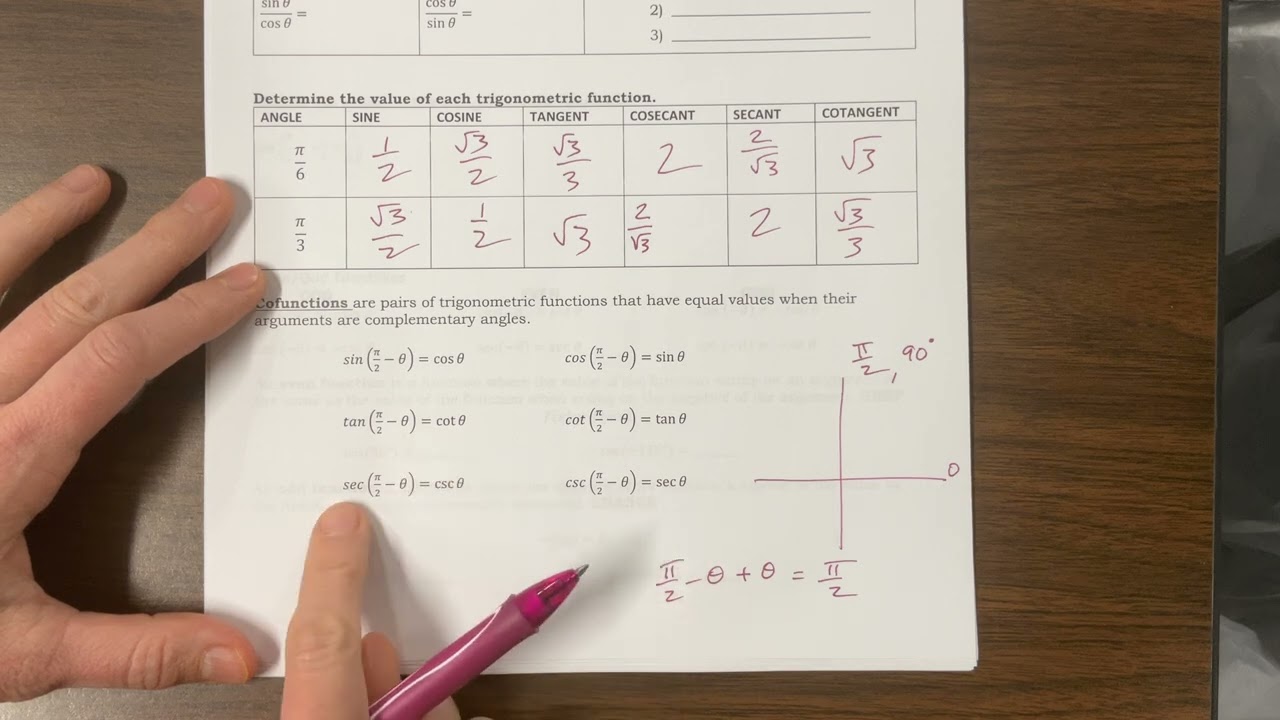 sin θ / cos θ =    cos θ / sin θ =    2) ____________
3) ____________
Determine the value of each trigonometric function.
ANGLE SINE COSINE TANGENT COSECANT SECANT COTANGENT
π/6 1/2 √3/2 √3/3 2 2/√3 √3
π/3 √3/2 1/2 √3 2/√3 2 √3/3
Cofunctions are pairs of trigonometric functions that have equal values when their
arguments are complementary angles.
sin(π/2 − θ) = cos θ    cos(π/2 − θ) = sin θ
π/2, 90°
tan(π/2 − θ) = cot θ    cot(π/2 − θ) = tan θ
sec(π/2 − θ) = csc θ    csc(π/2 − θ) = sec θ
0
π/2 − θ + θ = π/2